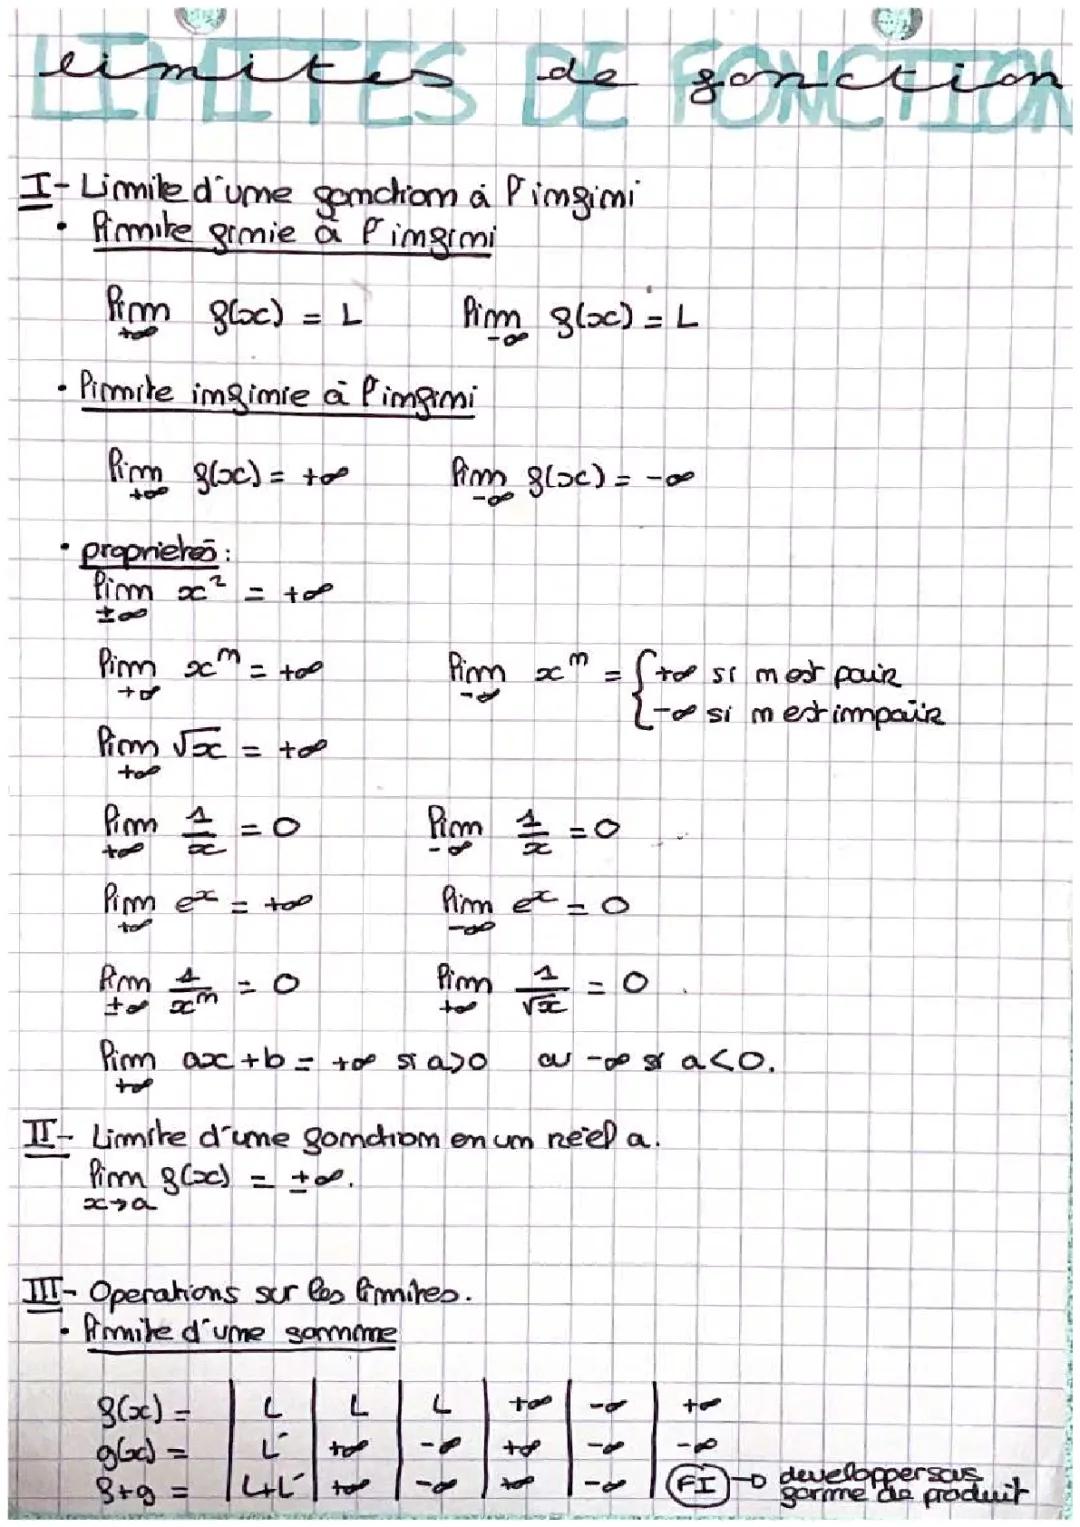 LIMITES DE FONCTION
limites de fonction
I- Limite d'une fonction à l'infini
• limite finie à l'infini
lim f(x) = L lim f(x) = L
+∞ -∞
• limite infinie à l'infini
lim f(x) = +∞ lim f(x) = -∞
+∞ -∞
• propriétés :
lim x² = +∞
±∞
lim xⁿ = +∞ lim xⁿ = { +∞ si n est pair
+∞ -∞ -∞ si n est impair
lim √x = +∞
+∞
lim 1/x = 0 lim 1/x = 0
+∞ -∞
lim eˣ = +∞ lim eˣ = 0
+∞ -∞
lim 1/xⁿ = 0 lim 1/√x = 0
±∞ +∞
lim ax + b = +∞ si a>0 ou -∞ si a<0.
+∞
II- Limite d'une fonction en un réel a.
lim f(x) = ±∞.
x→a
III- Operations sur les limites.
• limite d'une somme
f(x) = | L | L | L | +∞ | -∞ | +∞
g(x) = | L' | +∞ | -∞ | +∞ | -∞ | -∞
f+g = | L+L' | +∞ | -∞ | +∞ | -∞ | FI → developper sous
forme de produit